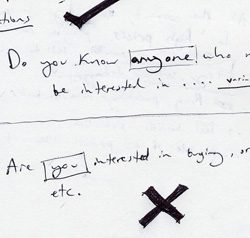 tions
Do you know anyone who
be interested in ....
Are you interested in buying, or
etc.